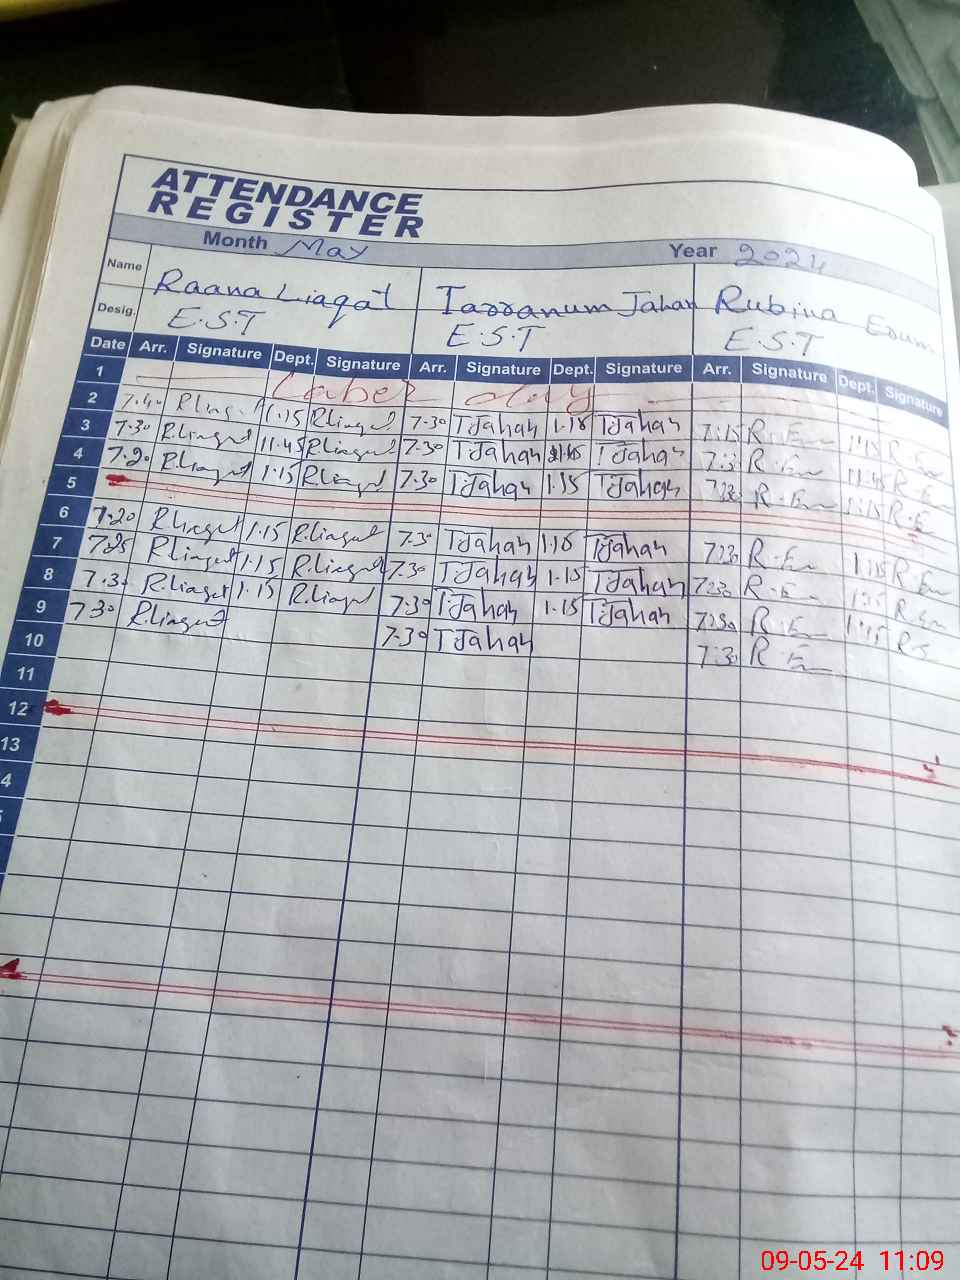 ATTENDANCE
REGISTER
Month May Year 2024
Name Raana Liaqat Tarranum Jahan Rubina
Desig. E.S.T E.S.T E.S.T
Date Arr. Signature Dept. Signature Arr. Signature Dept. Signature Arr. Signature Dept. Signature
1 Laber day
2 7.40 R.liaqat 1.15 R.liaqat 7.30 TJahan 1.15 TJahan 7:15 R. 1:15 R.
3 7.30 R.liaqat 11.45 R.liaqat 7.30 TJahan TJahan 7:3 R. 11:45 R.
4 7.20 R.liaqat 1.15 R.liaqat 7.30 TJahan 1.15 TJahan R. 1:15 R.
5
6 7.20 R.liaqat 1.15 R.liaqat 7.30 TJahan 1.15 TJahan R. 1:15 R.
7 7.25 R.liaqat 1.15 R.liaqat 7.30 TJahan 1.15 TJahan R. R.
8 7.30 R.liaqat 1.15 R.liaqat 7.30 TJahan 1.15 TJahan R. 1:15 R.
9 7.30 R.liaqat 7.30 TJahan 7:30 R.
10
11
12
13
4
09-05-24 11:09